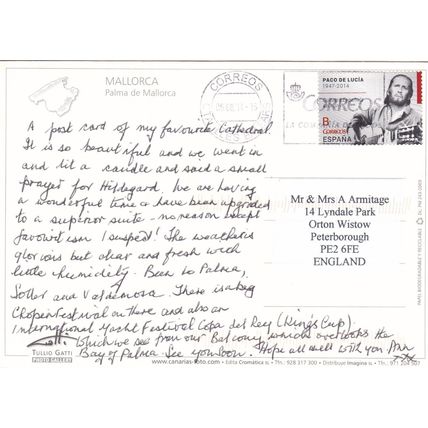 MALLORCA
Palma de Mallorca
CORREOS
PACO DE LUCÍA
1947-2014
CORREOS
B
CORREOS
ESPAÑA
A post card of my favourite Cathedral.
It is so beautiful and we went in
and lit a candle and said a small
prayer for Hildegard. We are having
a wonderful time & have been upgraded
to a superior suite - no reason except
favouritism I suspect! The weather is
glorious but clear and fresh with
little humidity. Been to Palma,
Soller and Valdemosa. There is a big
Chopin Festival on there and also an
International Yacht Festival Copa del Rey (King's Cup).
Which we see from our Balcony which overlooks the
Bay of Palma. See you soon. Hope all well with you Ann
xxx
Mr & Mrs A Armitage
14 Lyndale Park
Orton Wistow
Peterborough
PE2 6FE
ENGLAND
TULLIO GATTI
PHOTO GALLERY
www.canarias-foto.com - Edita Cromática is - Tfn.: 928 317 300 - Distribuye Imagina is - Tfn.: 971 204 507